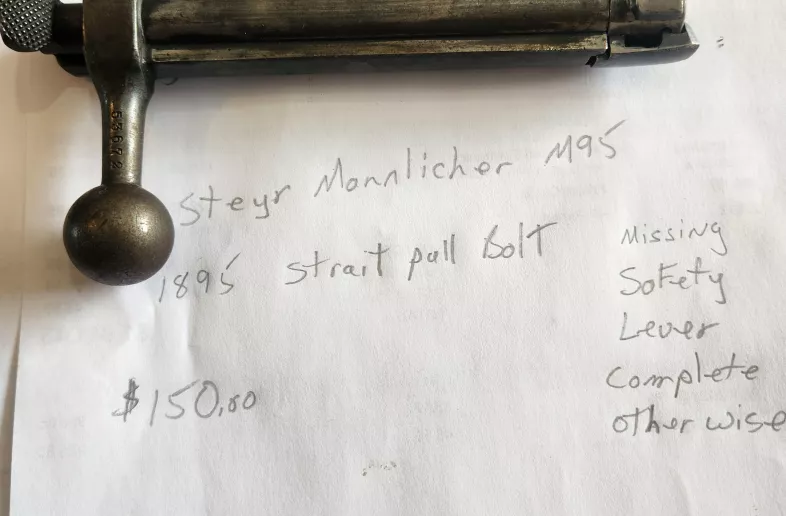 53672
Steyr Mannlicher M95
1895 Strait pull Bolt
$150.00
Missing
Safety
Lever
Complete
otherwise